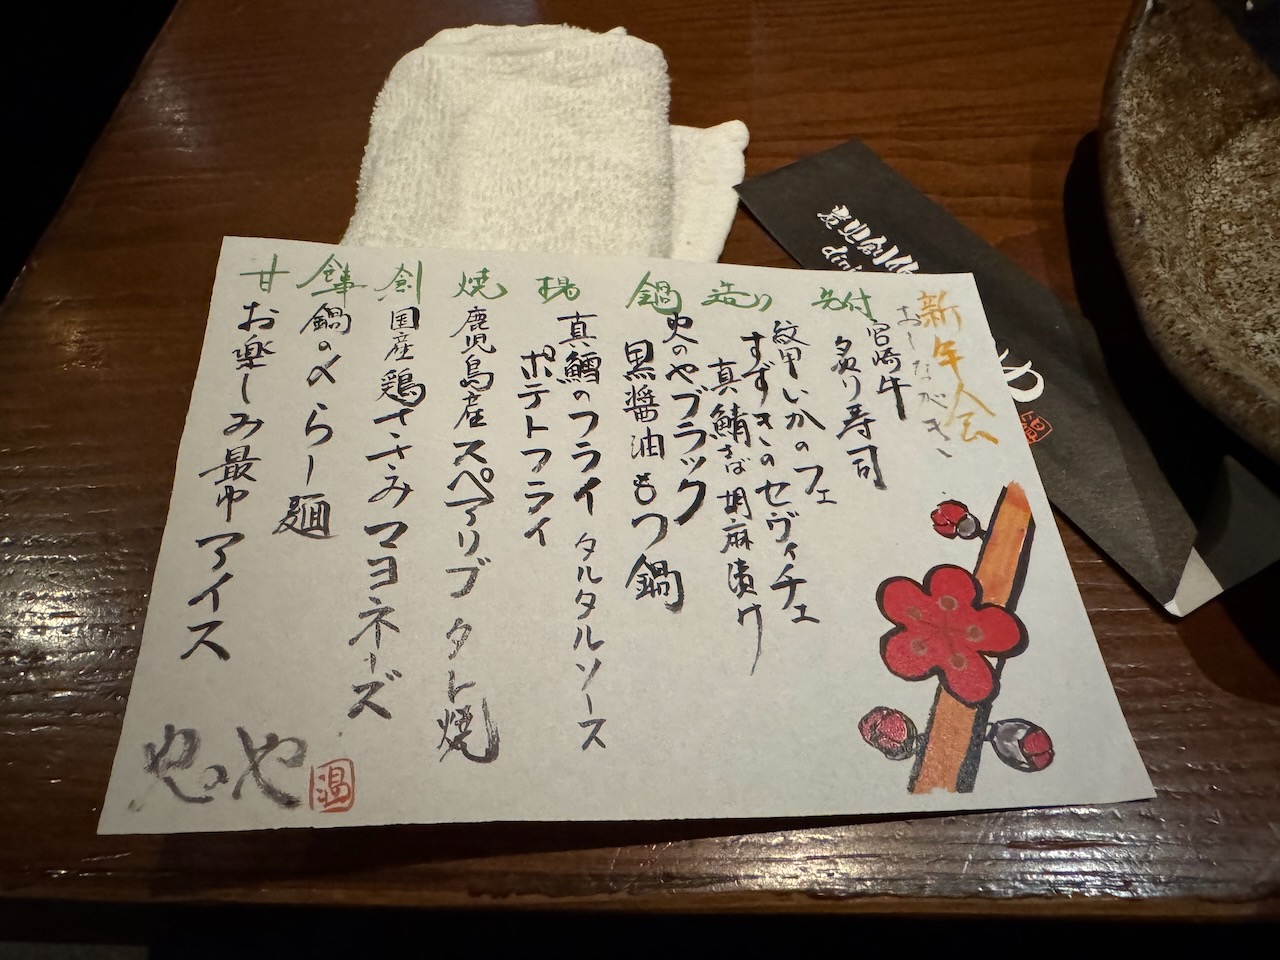 新年会
おしながき
先付
宮崎牛
炙り寿司
造り
紋甲いかのフェ
すずきのセヴィチェ
真鯖さば胡麻漬け
鍋
火のやブラック
黒醤油もつ鍋
揚
真鱈のフライ タルタルソース
ポテトフライ
焼
鹿児島産スペアリブ タレ焼
創
国産鶏ささみマヨネーズ
鍋の〆らー麺
甘
お楽しみ最中アイス